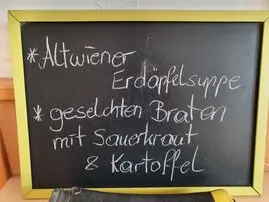 * Altwiener
Erdäpfelsuppe
* geselchten Braten
mit Sauerkraut
& Kartoffel